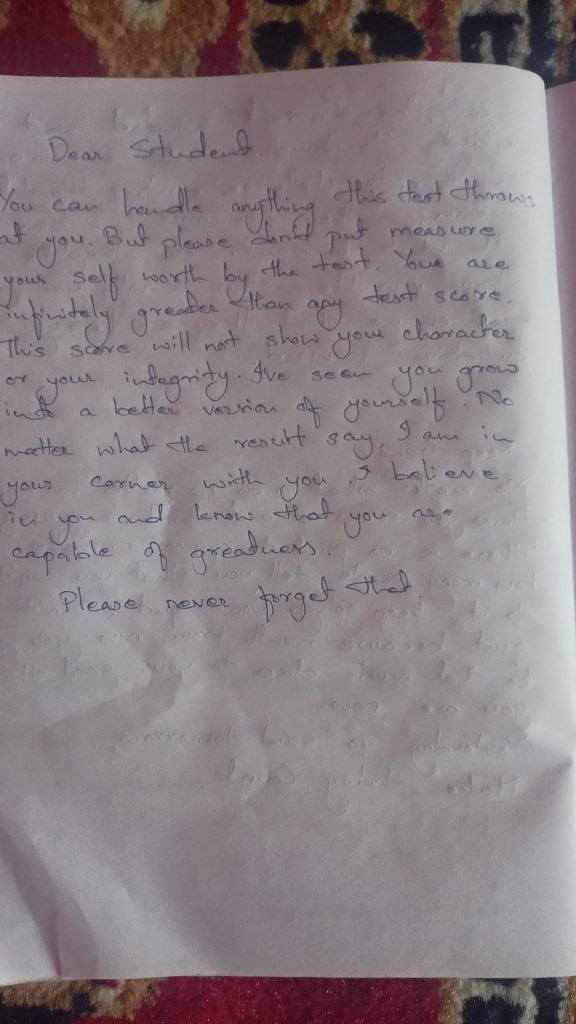 Dear Student.
You can handle anything this test throws
at you. But please don't put measure
your self worth by the test. You are
infinitely greater than any test score.
This score will not show your character
or your integrity. I've seen you grow
into a better version of yourself. No
matter what the result say, I am in
your corner with you. I believe
in you and know that you are
capable of greatness.
Please never forget that.